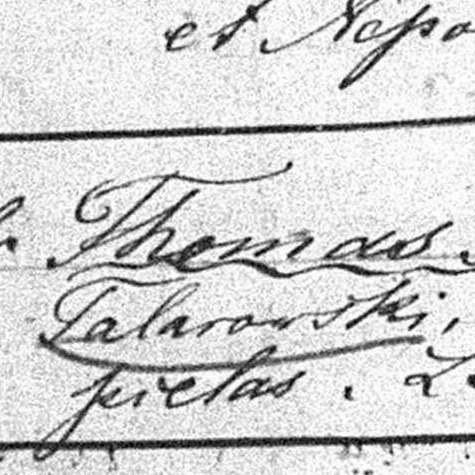 et Nepo
Thomas
Talarowski,
pielas.